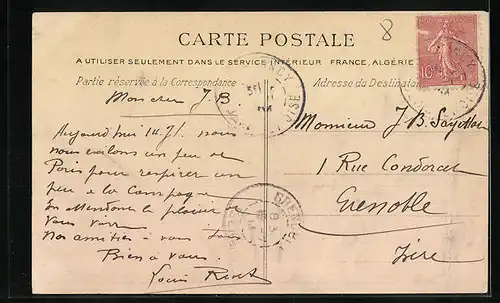 8
CARTE POSTALE
A UTILISER SEULEMENT DANS LE SERVICE INTÉRIEUR FRANCE, ALGÉRIE
Partie réservée à la Correspondance
Adresse du Destinataire
Mon cher J. B
Aujourd'hui 14 Jt. nous
nous exilons un peu de
Paris pour respirer un
peu à la Campagne
En attendant le plaisir
vous voir
Nos amitiés à vous tous
Bien à vous.
Louis
Monsieur J. B.
1 Rue Condorcet
Grenoble
Isère
10
GRENOBLE